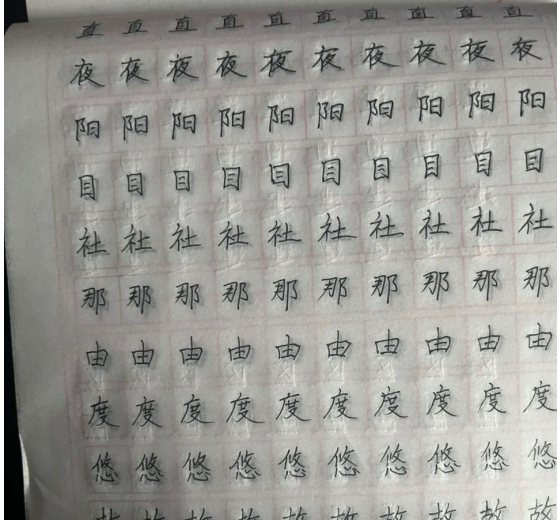 直 直 直 直 直 直 直 直 直 直
夜 夜 夜 夜 夜 夜 夜 夜 夜 夜
阳 阳 阳 阳 阳 阳 阳 阳 阳 阳
目 目 目 目 目 目 目 目 目 目
社 社 社 社 社 社 社 社 社 社
那 那 那 那 那 那 那 那 那 那
由 由 由 由 由 由 由 由 由 由
度 度 度 度 度 度 度 度 度 度
悠 悠 悠 悠 悠 悠 悠 悠 悠 悠
故 故 故 故 故 故 故 故 故 故